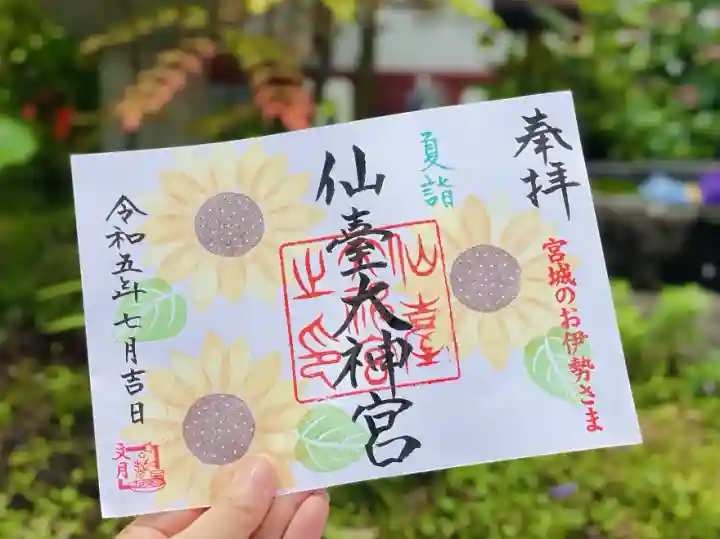 奉拝
夏詣
宮城のお伊勢さま
仙臺大神宮
令和五年七月吉日
文月